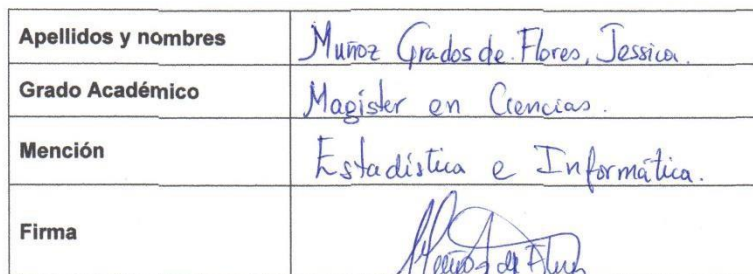 Apellidos y nombres Muñoz Grados de Flores, Jessica.
Grado Académico Magister en Ciencias.
Mención Estadística e Informática.
Firma Muñoz de Flores